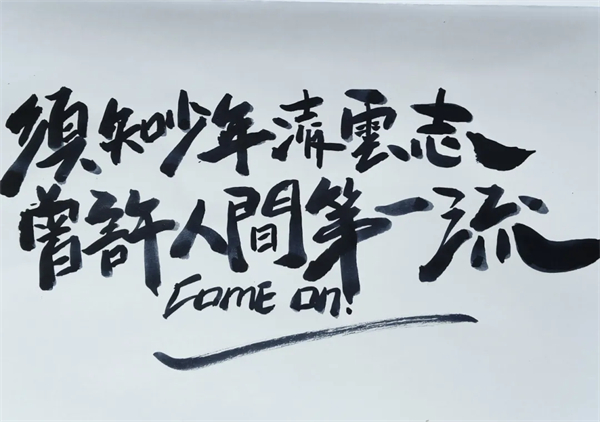 須知少年清雲志
曾許人間第一流
COME on!